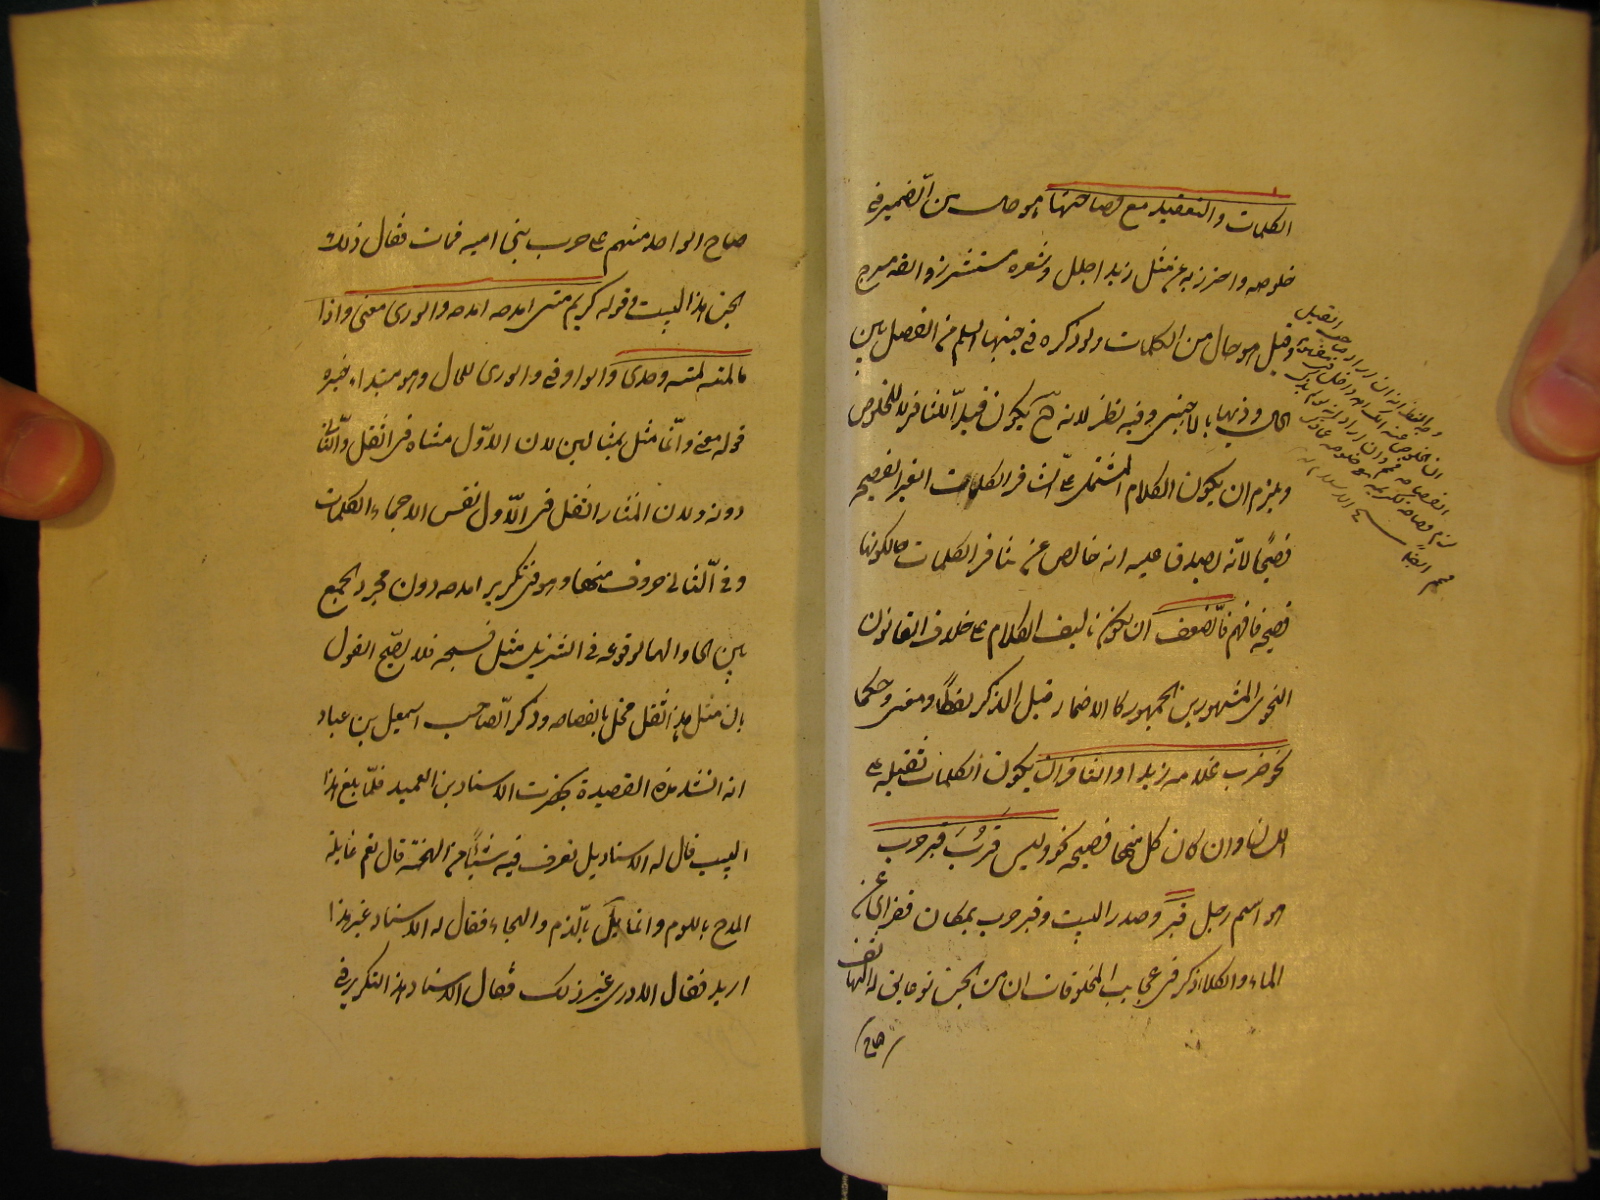 الكلمات والتعقيد مع فصاحتها هو حال من الضمير في
خلوصه واحترز به عن مثل زيد اجلل وشعره مستشزر وانفه مسرج
وقيل هو حال من الكلمات ولو ذكره في جنبها لسلم من الفصل بين
الحال وذيها بالاجنبي وفيه نظر لانه ح يكون قيدا للتنافر لا للخلوص
ويلزم ان يكون الكلام المشتمل على تنافر الكلمات الغير الفصيحة
فصيحا لانه يصدق عليه انه خالص عن تنافر الكلمات حالكونها
فصيحة فافهم فالضعف ان يكون تاليف الكلام على خلاف القانون
النحوي المشهور بين الجمهور كالاضمار قبل الذكر لفظا ومعنى وحكما
نحو ضرب غلامه زيدا والتنافر ان يكون الكلمات ثقيلة على
اللسان وان كان كل منها فصيحة نحو وليس قرب قبر حرب
هو اسم رجل قبر وصدر البيت وقبر حرب بمكان قفر اي خال عن
الماء والكلاء ذكر في عجايب المخلوقات ان من الجن نوعا يق له الهاتف
صاح
وجه النظر انه ان اراد صاحب القيل
صاح الواحد منهم على حرب بني اميه فمات فقال ذلك
الجن هذا البيت وقوله كريم متى امدحه امدحه والورى معي واذا
ما لمته لمته وحدى والواو في والورى للحال وهو مبتداء خبره
قوله معي وانما مثل بمثالين لان الاول متناه في الثقل والثاني
دونه ولان المنشاء الثقل في الاول نفس اجتماع الكلمات
وفي الثاني حروف منها وهو في تكرير امدحه دون مجرد الجمع
بين الحاء والهاء لوقوعه في التنزيل مثل فسبحه فلا يصح القول
بان مثل هذا الثقل مخل بالفصاحه وذكر الصاحب اسمعيل بن عباد
انه انشد هذه القصيدة بحضرت الاستاد بن العميد فلما بلغ هذا
البيت قال له الاستاد هل تعرف فيه شيئا من الهجنة قال نعم مقابلة
المدح باللوم وانما يقابل بالذم والهجاء فقال له الاستاد غير هذا
اريد فقال لا ادرى غير ذلك فقال الاستاد هذا التكرير في